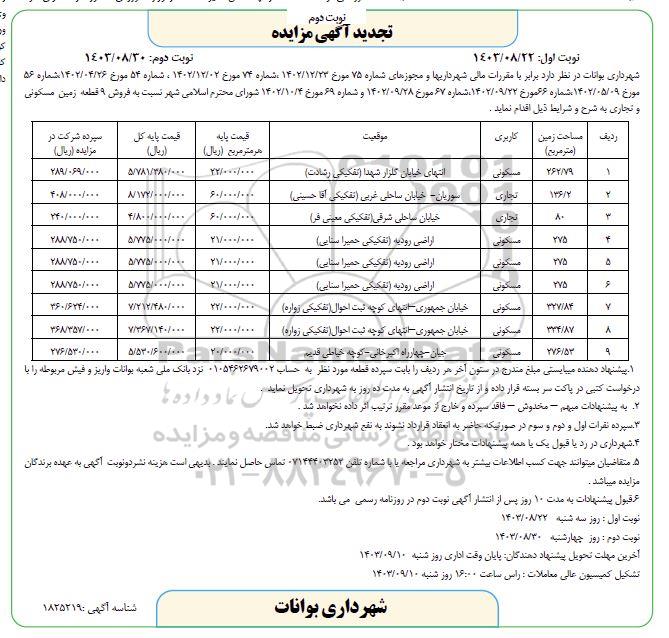 نوبت دوم
تجدید آگهی مزایده
نوبت اول: ۱۴۰۳/۰۸/۲۲ نوبت دوم: ۱۴۰۳/۰۸/۳۰
شهرداری بوانات در نظر دارد برابر با مقررات مالی شهرداریها و مجوزهای شماره ۷۵ مورخ ۱۴۰۲/۱۲/۲۳ ،شماره ۷۴ مورخ ۱۴۰۲/۱۲/۰۲ ، شماره ۵۴ مورخ ۱۴۰۲/۰۴/۲۶،شماره ۵۶
مورخ ۱۴۰۲/۰۵/۰۹،شماره ۶۶مورخ ۱۴۰۲/۰۹/۲۲،شماره ۶۷ مورخ ۱۴۰۲/۰۹/۲۸ و شماره ۶۹ مورخ ۱۴۰۲/۱۰/۴ شورای محترم اسلامی شهر نسبت به فروش ۹ قطعه زمین مسکونی
و تجاری به شرح و شرایط ذیل اقدام نماید .
ردیف مساحت زمین (مترمربع) کاربری موقعیت قیمت پایه هرمترمربع (ریال) قیمت پایه کل (ریال) سپرده شرکت در مزایده (ریال)
۱ ۲۶۲/۷۹ مسکونی انتهای خیابان گلزار شهدا (تفکیکی رشادت) ۲۲/۰۰۰/۰۰۰ ۵/۷۸۱/۳۸۰/۰۰۰ ۲۸۹/۰۶۹/۰۰۰
۲ ۱۳۶/۲ تجاری سوریان- خیابان ساحلی غربی (تفکیکی آقا حسینی) ۶۰/۰۰۰/۰۰۰ ۸/۱۷۲/۰۰۰/۰۰۰ ۴۰۸/۰۰۰/۰۰۰
۳ ۸۰ تجاری خیابان ساحلی شرقی(تفکیکی معینی فر) ۶۰/۰۰۰/۰۰۰ ۴/۸۰۰/۰۰۰/۰۰۰ ۲۴۰/۰۰۰/۰۰۰
۴ ۲۷۵ مسکونی اراضی رودیه (تفکیکی حمیرا سنایی) ۲۱/۰۰۰/۰۰۰ ۵/۷۷۵/۰۰۰/۰۰۰ ۲۸۸/۷۵۰/۰۰۰
۵ ۲۷۵ مسکونی اراضی رودیه (تفکیکی حمیرا سنایی) ۲۱/۰۰۰/۰۰۰ ۵/۷۷۵/۰۰۰/۰۰۰ ۲۸۸/۷۵۰/۰۰۰
۶ ۲۷۵ مسکونی اراضی رودیه (تفکیکی حمیرا سنایی) ۲۱/۰۰۰/۰۰۰ ۵/۷۷۵/۰۰۰/۰۰۰ ۲۸۸/۷۵۰/۰۰۰
۷ ۳۲۷/۸۴ مسکونی خیابان جمهوری–انتهای کوچه ثبت احوال(تفکیکی زواره) ۲۲/۰۰۰/۰۰۰ ۷/۲۱۲/۴۸۰/۰۰۰ ۳۶۰/۶۲۴/۰۰۰
۸ ۳۳۴/۸۷ مسکونی خیابان جمهوری–انتهای کوچه ثبت احوال(تفکیکی زواره) ۲۲/۰۰۰/۰۰۰ ۷/۳۶۷/۱۴۰/۰۰۰ ۳۶۸/۳۵۷/۰۰۰
۹ ۲۷۶/۵۳ مسکونی جیان–چهارراه اکبرخانی–کوچه خیاطی قدیم ۲۰/۰۰۰/۰۰۰ ۵/۵۳۰/۶۰۰/۰۰۰ ۲۷۶/۵۳۰/۰۰۰
۱.پیشنهاد دهنده میبایستی مبلغ مندرج در ستون آخر هر ردیف را بابت سپرده قطعه مورد نظر به حساب ۰۱۰۵۴۶۲۶۷۹۰۰۲ نزد بانک ملی شعبه بوانات واریز و فیش مربوطه را با
درخواست کتبی در پاکت سر بسته قرار داده و از تاریخ انتشار آگهی به مدت ده روز به شهرداری تحویل نماید .
۲. به پیشنهادات مبهم – مخدوش – فاقد سپرده و خارج از موعد مقرر ترتیب اثر داده نخواهد شد .
۳.سپرده نفرات اول و دوم و سوم در صورتیکه حاضر به انعقاد قرارداد نشوند به نفع شهرداری ضبط خواهد شد.
۴.شهرداری در رد یا قبول یک یا همه پیشنهادات مختار خواهد بود .
۵. متقاضیان میتوانند جهت کسب اطلاعات بیشتر به شهرداری مراجعه یا با شماره تلفن ۰۷۱۴۴۴۰۳۲۵۳ تماس حاصل نمایند . بدیهی است هزینه نشردونوبت آگهی به عهده برندگان
مزایده میباشد .
۶.قبول پیشنهادات به مدت ۱۰ روز پس از انتشار آگهی نوبت دوم در روزنامه رسمی می باشد.
نوبت اول : روز سه شنبه ۱۴۰۳/۰۸/۲۲
نوبت دوم : روز چهارشنبه ۱۴۰۳/۰۸/۳۰
آخرین مهلت تحویل پیشنهاد دهندگان: پایان وقت اداری روز شنبه ۱۴۰۳/۰۹/۱۰
تشکیل کمیسیون عالی معاملات : راس ساعت ۱۶:۰۰ روز شنبه ۱۴۰۳/۰۹/۱۰
شهرداری بوانات
شناسه آگهی :۱۸۲۵۲۱۹